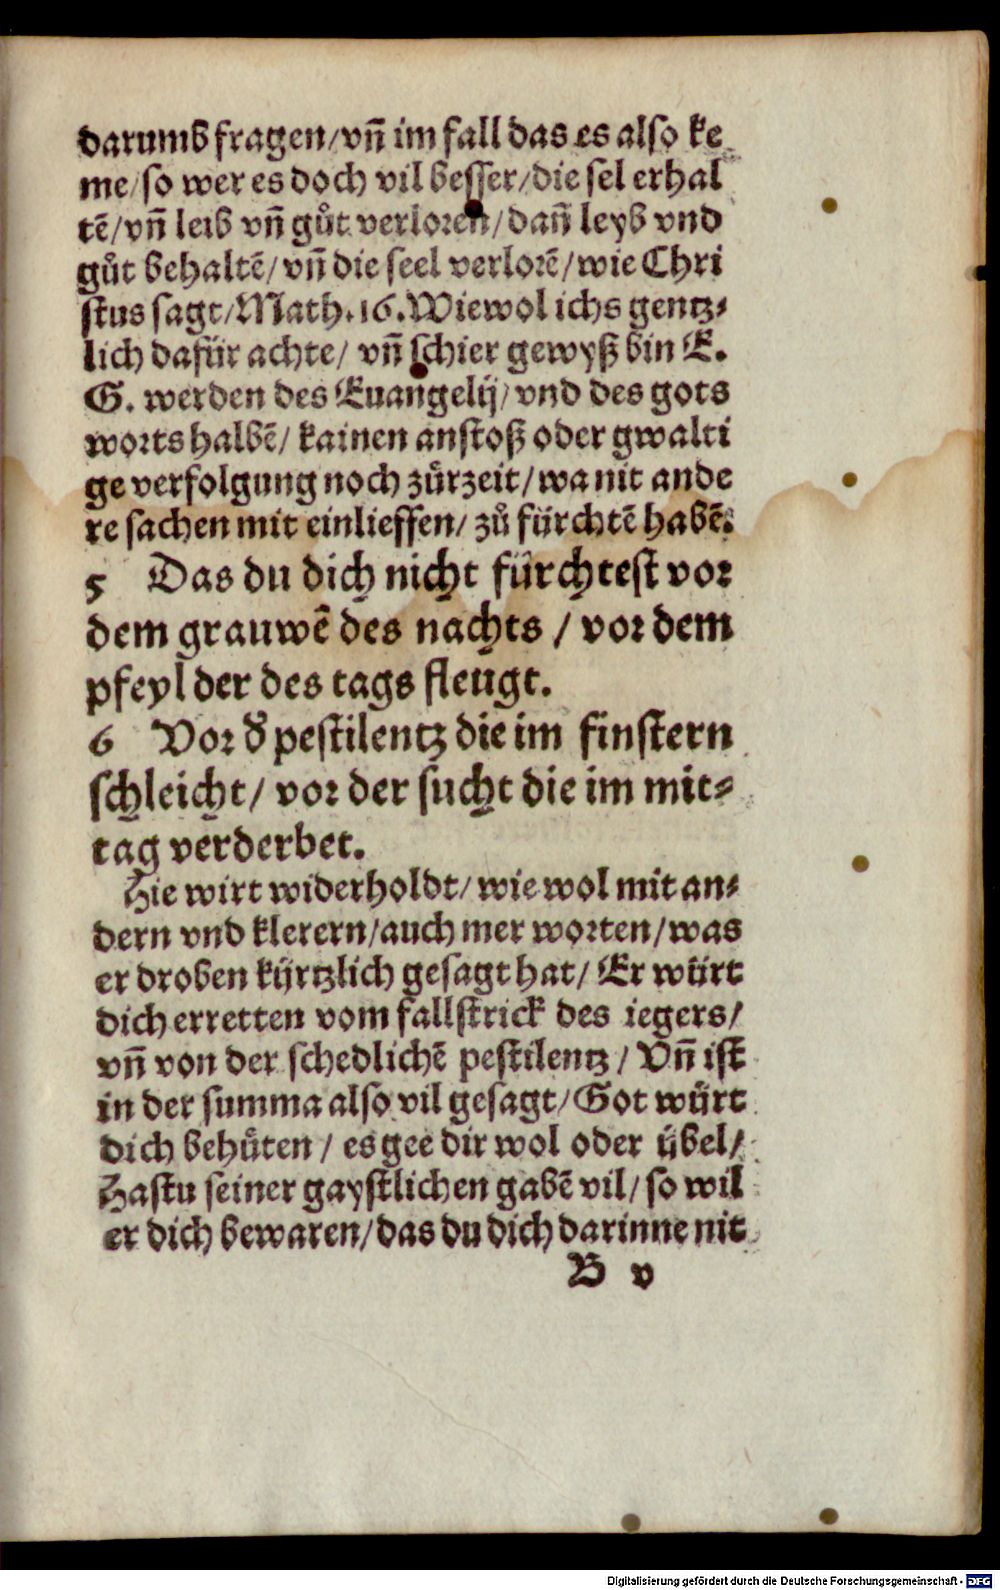 darumb fragen/vñ im fall das es also ke
me/so wer es doch vil besser/die sel erhal
tē/vñ leib vñ gůt verloren/dañ leyb vnd
gůt behaltē/vñ die seel verlorē/wie Chri
stus sagt/Math.16.Wiewol ichs gentz⸗
lich dafür achte/ vñ schier gewyß bin E.
G. werden des Euangelij/vnd des gots
worts halbē/ kainen anstoß oder gwalti
ge verfolgung noch zůrzeit/wa nit ande
re sachen mit einlieffen/ zů fürchtē habē.
5 Das du dich nicht fürchtest vor
dem grauwē des nachts / vor dem
pfeyl der des tags fleugt.
6 Vor ď pestilentz die im finstern
schleicht/ vor der sucht die im mit⸗
tag verderbet.
Hie wirt widerholdt/ wie wol mit an⸗
dern vnd klerern/auch mer worten/was
er droben kürtzlich gesagt hat/ Er würt
dich erretten vom fallstrick des iegers/
vñ von der schedlichē pestilentz / Vñ ist
in der summa also vil gesagt/Got würt
dich behůten / es gee dir wol oder übel/
Hastu seiner gaystlichen gabē vil/ so wil
er dich bewaren/das du dich darinne nit
B v
Digitalisierung gefördert durch die Deutsche Forschungsgemeinschaft - DFG